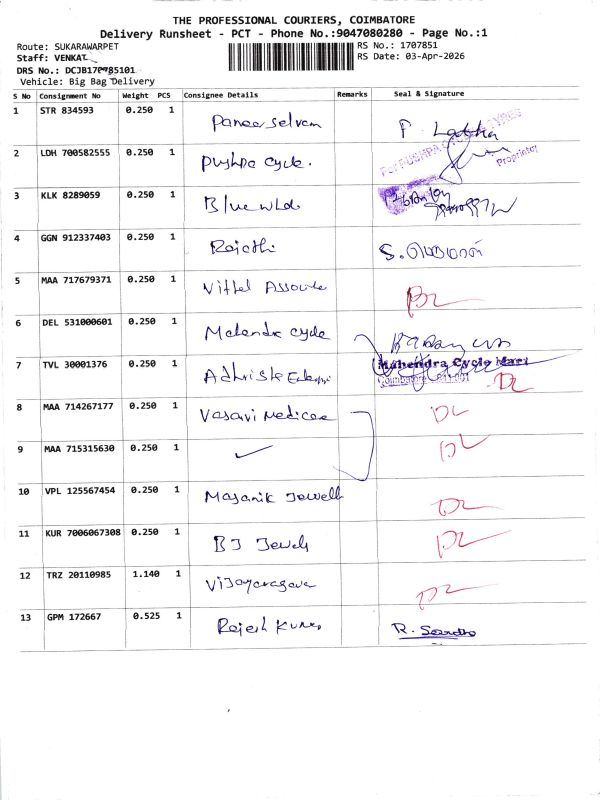 THE PROFESSIONAL COURIERS, COIMBATORE
Delivery Runsheet - PCT - Phone No.:9047080280 - Page No.:1
Route: SUKARAWARPET
RS No.: 1707851
Staff: VENKAT
RS Date: 03-Apr-2026
DRS No.: DCJB170785101
Vehicle: Big Bag Delivery
S No Consignment No Weight PCS Consignee Details Remarks Seal & Signature
1 STR 834593 0.250 1 Panneer selvam P. Latha
2 LDH 700582555 0.250 1 Pushpa cycle. For PUSHPA CYCLE TYRES
Proprietor
3 KLK 8289059 0.250 1 Bluewld
4 GGN 912337403 0.250 1 Rajathi S.
5 MAA 717679371 0.250 1 Vittel Associate DL
6 DEL 531000601 0.250 1 Mahendra cycle
7 TVL 30001376 0.250 1 Mahendra Cycle Mart
Coimbatore - 641 001 DL
8 MAA 714267177 0.250 1 Vasavi Medicare DL
9 MAA 715315630 0.250 1 ✓ DL
10 VPL 125567454 0.250 1 Jewell DL
11 KUR 7006067308 0.250 1 BJ Jewels DL
12 TRZ 20110985 1.140 1 Vijayaragava DL
13 GPM 172667 0.525 1 Rajesh Kumar R.